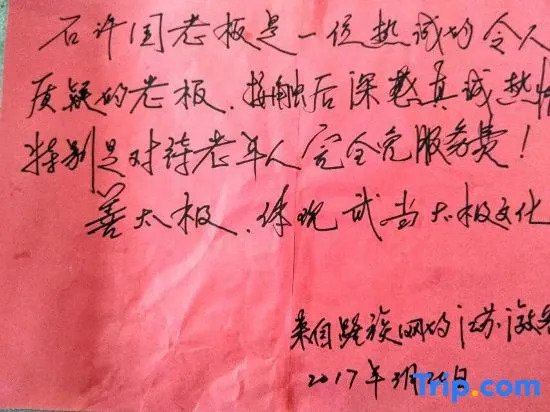 石许国老板是一位热诚的令人
质疑的老板、接触后深感真诚热情
特别是对待老年人完全免服务费！
善太极、体现武当太极文化
来自驴族网的江苏
2017年3月20日
Trip.com